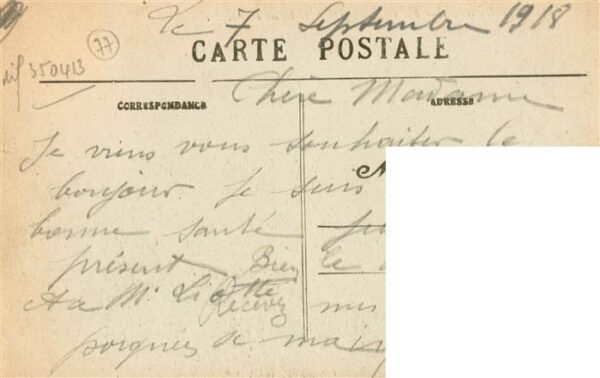 Le 7 Septembre 1918
77
réf 350413
CARTE POSTALE
Chère Madame
CORRESPONDANCE
ADRESSE
Je viens vous souhaiter le
bonjour. Je suis
bonne santé
présent Bien le
A Mr
Recevez mes
poignées de main